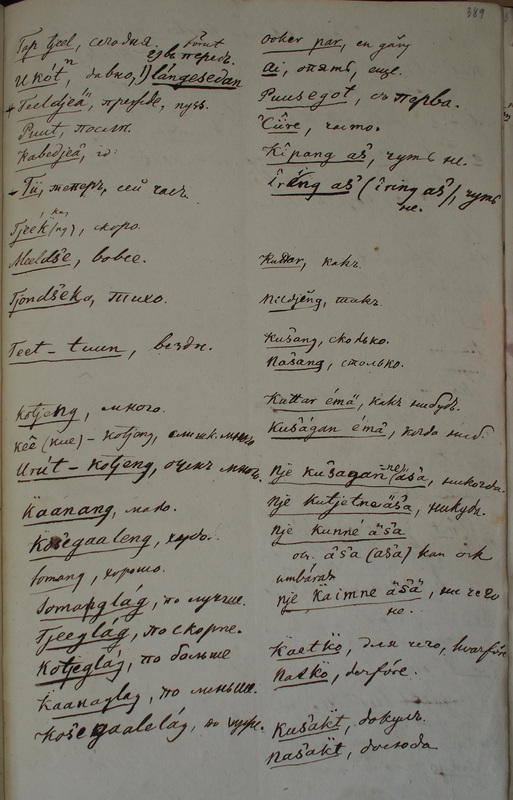 389
Tap tjeel, сегодня.
Ukót, давно,
längesedan
förut
Teeldjeä, прежде,
Puut, послѣ.
Kabedjeä, id:
Tü, теперь, сей часъ.
Tjeek, скоро.
Meeldše, вовсе.
Tjondšeka, тихо.
Teet-tuun, вездѣ.
Kotjeng, много.
Keê (kue) - Kotjeng,
Urút - Kotjeng, очень много.
Kaanang, мало.
Košegaaleng, худо.
Somang, хорошо.
Somanglág, по лучше.
Tjeeglág, по скорѣе.
Kotjeglág, по больше
Kaanaglag, по меньше.
Košegaalelág, по хуже.
Ooker par, en gång
Ai, опять, еще.
Puusegot, съ перва.
Cüre, часто.
Kîpang aš, чуть не.
îréng aš (îring aš), чуть
не.
Kuttar, какъ.
Nildjeng, такъ.
Kušang, сколько.
Našang, столько.
Kuttar émä, какъ нибудь.
Kušágan émä, когда нибуд.
Nje kušagan äšä, никогда.
Nje kutjetne äšä, никуда.
Nje kunné äšä
och äšä (ašä) kan och
umbäras
Nje kaimne äšä, ни чего
не.
Kaetkö, для чего, hvarföre
Natkö, derföre.
Kušakt, докуль.
Našakt, досюда